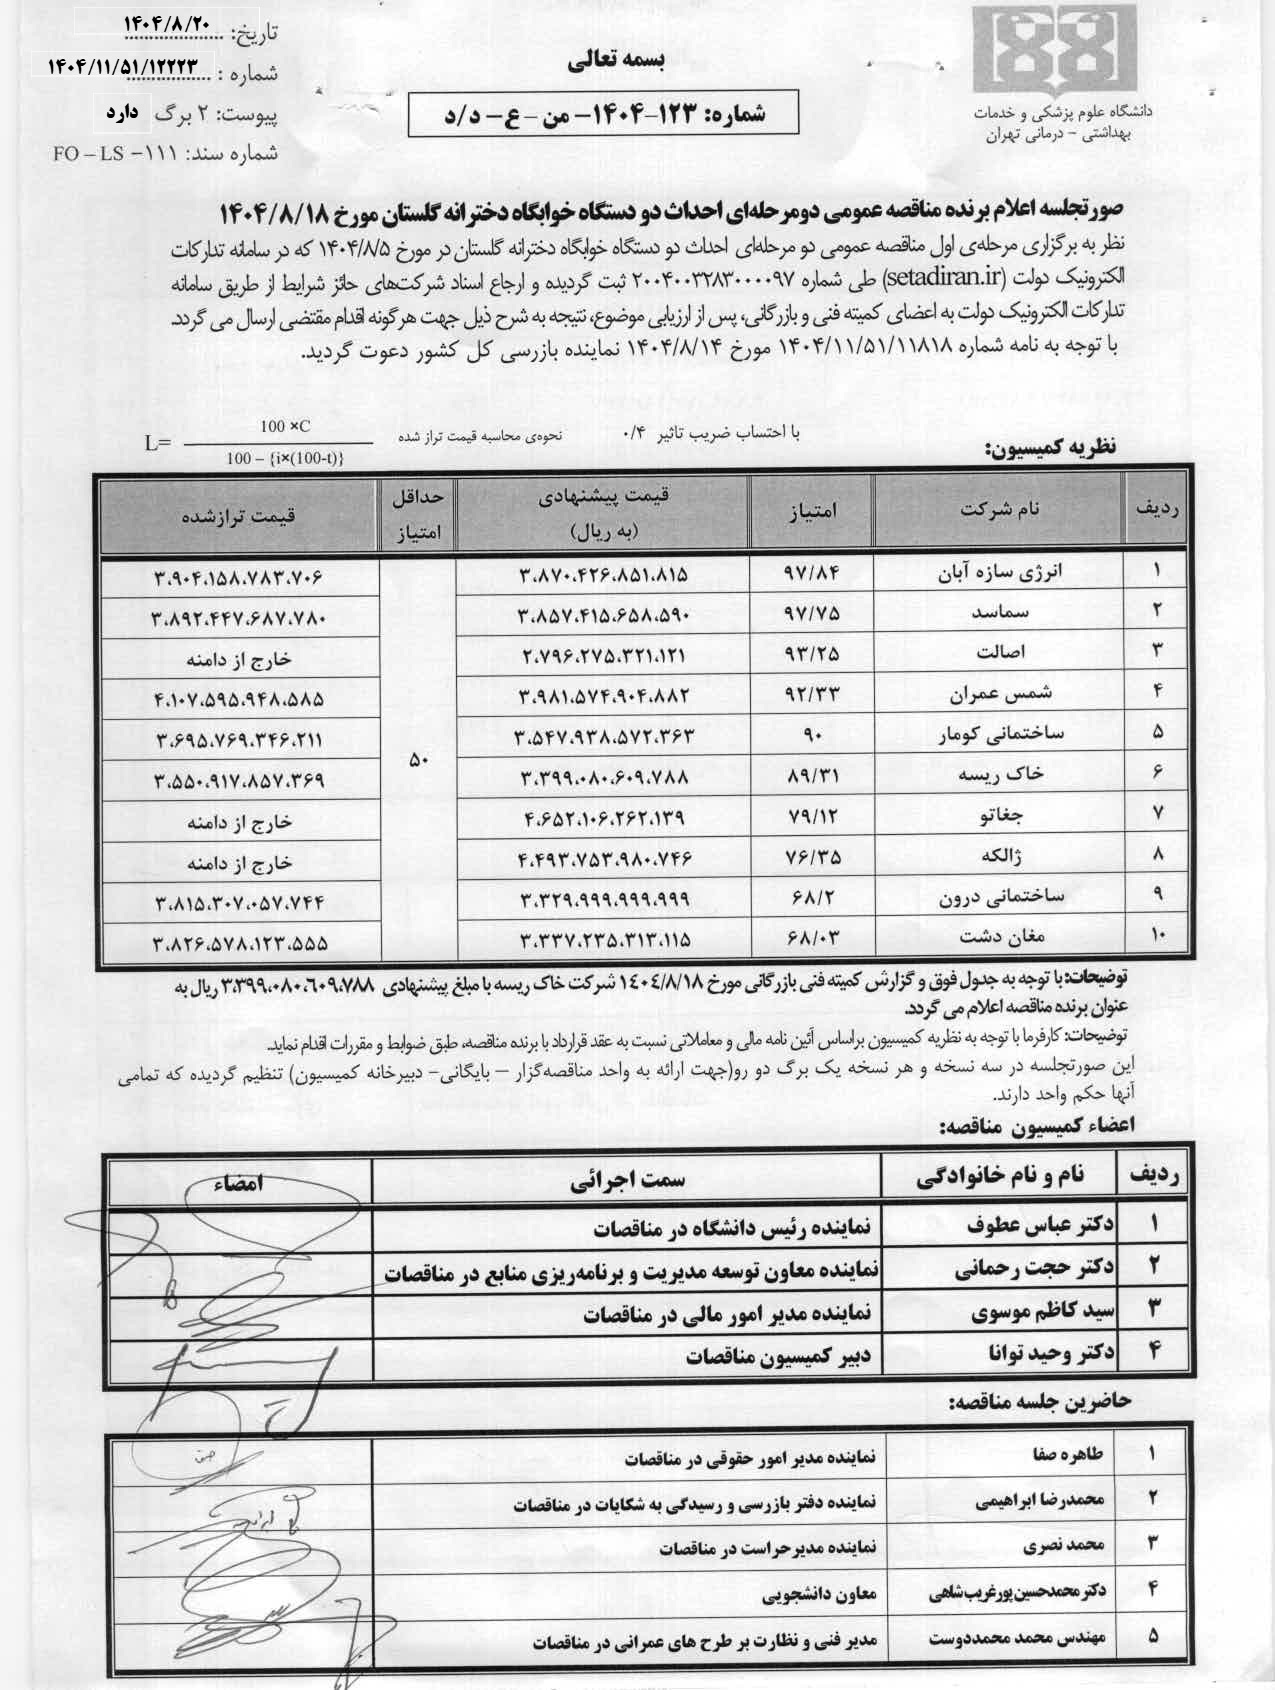 تاریخ: ۱۴۰۴/۸/۲۰
شماره : ۱۴۰۴/۱۱/۵۱/۱۲۲۲۳
پیوست: ۲ برگ دارد
شماره سند: FO – LS –۱۱۱
بسمه تعالی
شماره: ۱۲۳-۱۴۰۴- من - ع - د/د
دانشگاه علوم پزشکی و خدمات
بهداشتی - درمانی تهران
صورتجلسه اعلام برنده مناقصه عمومی دومرحله‌ای احداث دو دستگاه خوابگاه دخترانه گلستان مورخ ۱۴۰۴/۸/۱۸
نظر به برگزاری مرحله‌ی اول مناقصه عمومی دو مرحله‌ای احداث دو دستگاه خوابگاه دخترانه گلستان در مورخ ۱۴۰۴/۸/۵ که در سامانه تدارکات
الکترونیک دولت (setadiran.ir) طی شماره ۲۰۰۴۰۰۳۲۸۳۰۰۰۰۹۷ ثبت گردیده و ارجاع اسناد شرکت‌های حائز شرایط از طریق سامانه
تدارکات الکترونیک دولت به اعضای کمیته فنی و بازرگانی، پس از ارزیابی موضوع، نتیجه به شرح ذیل جهت هرگونه اقدام مقتضی ارسال می گردد.
با توجه به نامه شماره ۱۴۰۴/۱۱/۵۱/۱۱۸۱۸ مورخ ۱۴۰۴/۸/۱۴ نماینده بازرسی کل کشور دعوت گردید.
نظریه کمیسیون:
با احتساب ضریب تاثیر ۰/۴ نحوه‌ی محاسبه قیمت تراز شده
L= 100 ×C
100 – {i×(100-t)}
ردیف نام شرکت امتیاز قیمت پیشنهادی (به ریال) حداقل امتیاز قیمت ترازشده
۱ انرژی سازه آبان ۹۷/۸۴ ۳،۸۷۰،۴۲۶،۸۵۱،۸۱۵ ۳،۹۰۴،۱۵۸،۷۸۳،۷۰۶
۲ سماسد ۹۷/۷۵ ۳،۸۵۷،۴۱۵،۶۵۸،۵۹۰ ۳،۸۹۲،۴۴۷،۶۸۷،۷۸۰
۳ اصالت ۹۳/۲۵ ۲،۷۹۶،۲۷۵،۳۲۱،۱۲۱ خارج از دامنه
۴ شمس عمران ۹۲/۳۳ ۳،۹۸۱،۵۷۴،۹۰۴،۸۸۲ ۴،۱۰۷،۵۹۵،۹۴۸،۵۸۵
۵ ساختمانی کومار ۹۰ ۳،۵۴۷،۹۳۸،۵۷۲،۳۶۳ ۳،۶۹۵،۷۶۹،۳۴۶،۲۱۱
۵۰
۶ خاک ریسه ۸۹/۳۱ ۳،۳۹۹،۰۸۰،۶۰۹،۷۸۸ ۳،۵۵۰،۹۱۷،۸۵۷،۳۶۹
۷ جغاتو ۷۹/۱۲ ۴،۶۵۲،۱۰۶،۲۶۲،۱۳۹ خارج از دامنه
۸ ژالکه ۷۶/۳۵ ۴،۴۹۳،۷۵۳،۹۸۰،۷۴۶ خارج از دامنه
۹ ساختمانی درون ۶۸/۲ ۳،۳۲۹،۹۹۹,۹۹۹،۹۹۹ ۳،۸۱۵،۳۰۷،۰۵۷،۷۴۴
۱۰ مغان دشت ۶۸/۰۳ ۳،۳۳۷،۲۳۵،۳۱۳،۱۱۵ ۳،۸۲۶،۵۷۸،۱۲۳،۵۵۵
توضیحات: با توجه به جدول فوق و گزارش کمیته فنی بازرگانی مورخ ۱۴۰۴/۸/۱۸ شرکت خاک ریسه با مبلغ پیشنهادی ۳،۳۹۹،۰۸۰،۶۰۹،۷۸۸ ریال به
عنوان برنده مناقصه اعلام می گردد.
توضیحات: کارفرما با توجه به نظریه کمیسیون براساس آئین نامه مالی و معاملاتی نسبت به عقد قرارداد با برنده مناقصه، طبق ضوابط و مقررات اقدام نماید.
این صورتجلسه در سه نسخه و هر نسخه یک برگ دو رو(جهت ارائه به واحد مناقصه‌گزار – بایگانی- دبیرخانه کمیسیون) تنظیم گردیده که تمامی
آنها حکم واحد دارند.
اعضاء کمیسیون مناقصه:
ردیف نام و نام خانوادگی سمت اجرائی امضاء
۱ دکتر عباس عطوف نماینده رئیس دانشگاه در مناقصات
۲ دکتر حجت رحمانی نماینده معاون توسعه مدیریت و برنامه‌ریزی منابع در مناقصات
۳ سید کاظم موسوی نماینده مدیر امور مالی در مناقصات
۴ دکتر وحید توانا دبیر کمیسیون مناقصات
حاضرین جلسه مناقصه:
۱ طاهره صفا نماینده مدیر امور حقوقی در مناقصات
۲ محمدرضا ابراهیمی نماینده دفتر بازرسی و رسیدگی به شکایات در مناقصات
۳ محمد نصری نماینده مدیرحراست در مناقصات
۴ دکتر محمدحسین پورغریب‌شاهی معاون دانشجویی
۵ مهندس محمد محمددوست مدیر فنی و نظارت بر طرح های عمرانی در مناقصات